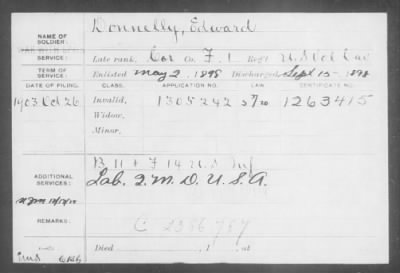 NAME OF SOLDIER: Donnelly, Edward
WAR WITH SPAIN
SERVICE: Late rank, Cor Co. F, 1 Reg't U.S. Vol Cav
TERM OF SERVICE: Enlisted May 2, 1898 Discharged, Sept 15-, 1898
DATE OF FILING. CLASS. APPLICATION NO. LAW. CERTIFICATE NO.
1903 Oct 26 Invalid, 1305242 1263415
Widow,
Minor,
ADDITIONAL SERVICES: B 11 + F 14 U.S. Inf
Lab. Q.M.D.U.S.A.
REMARKS: C 2386787
Died , 1 , at